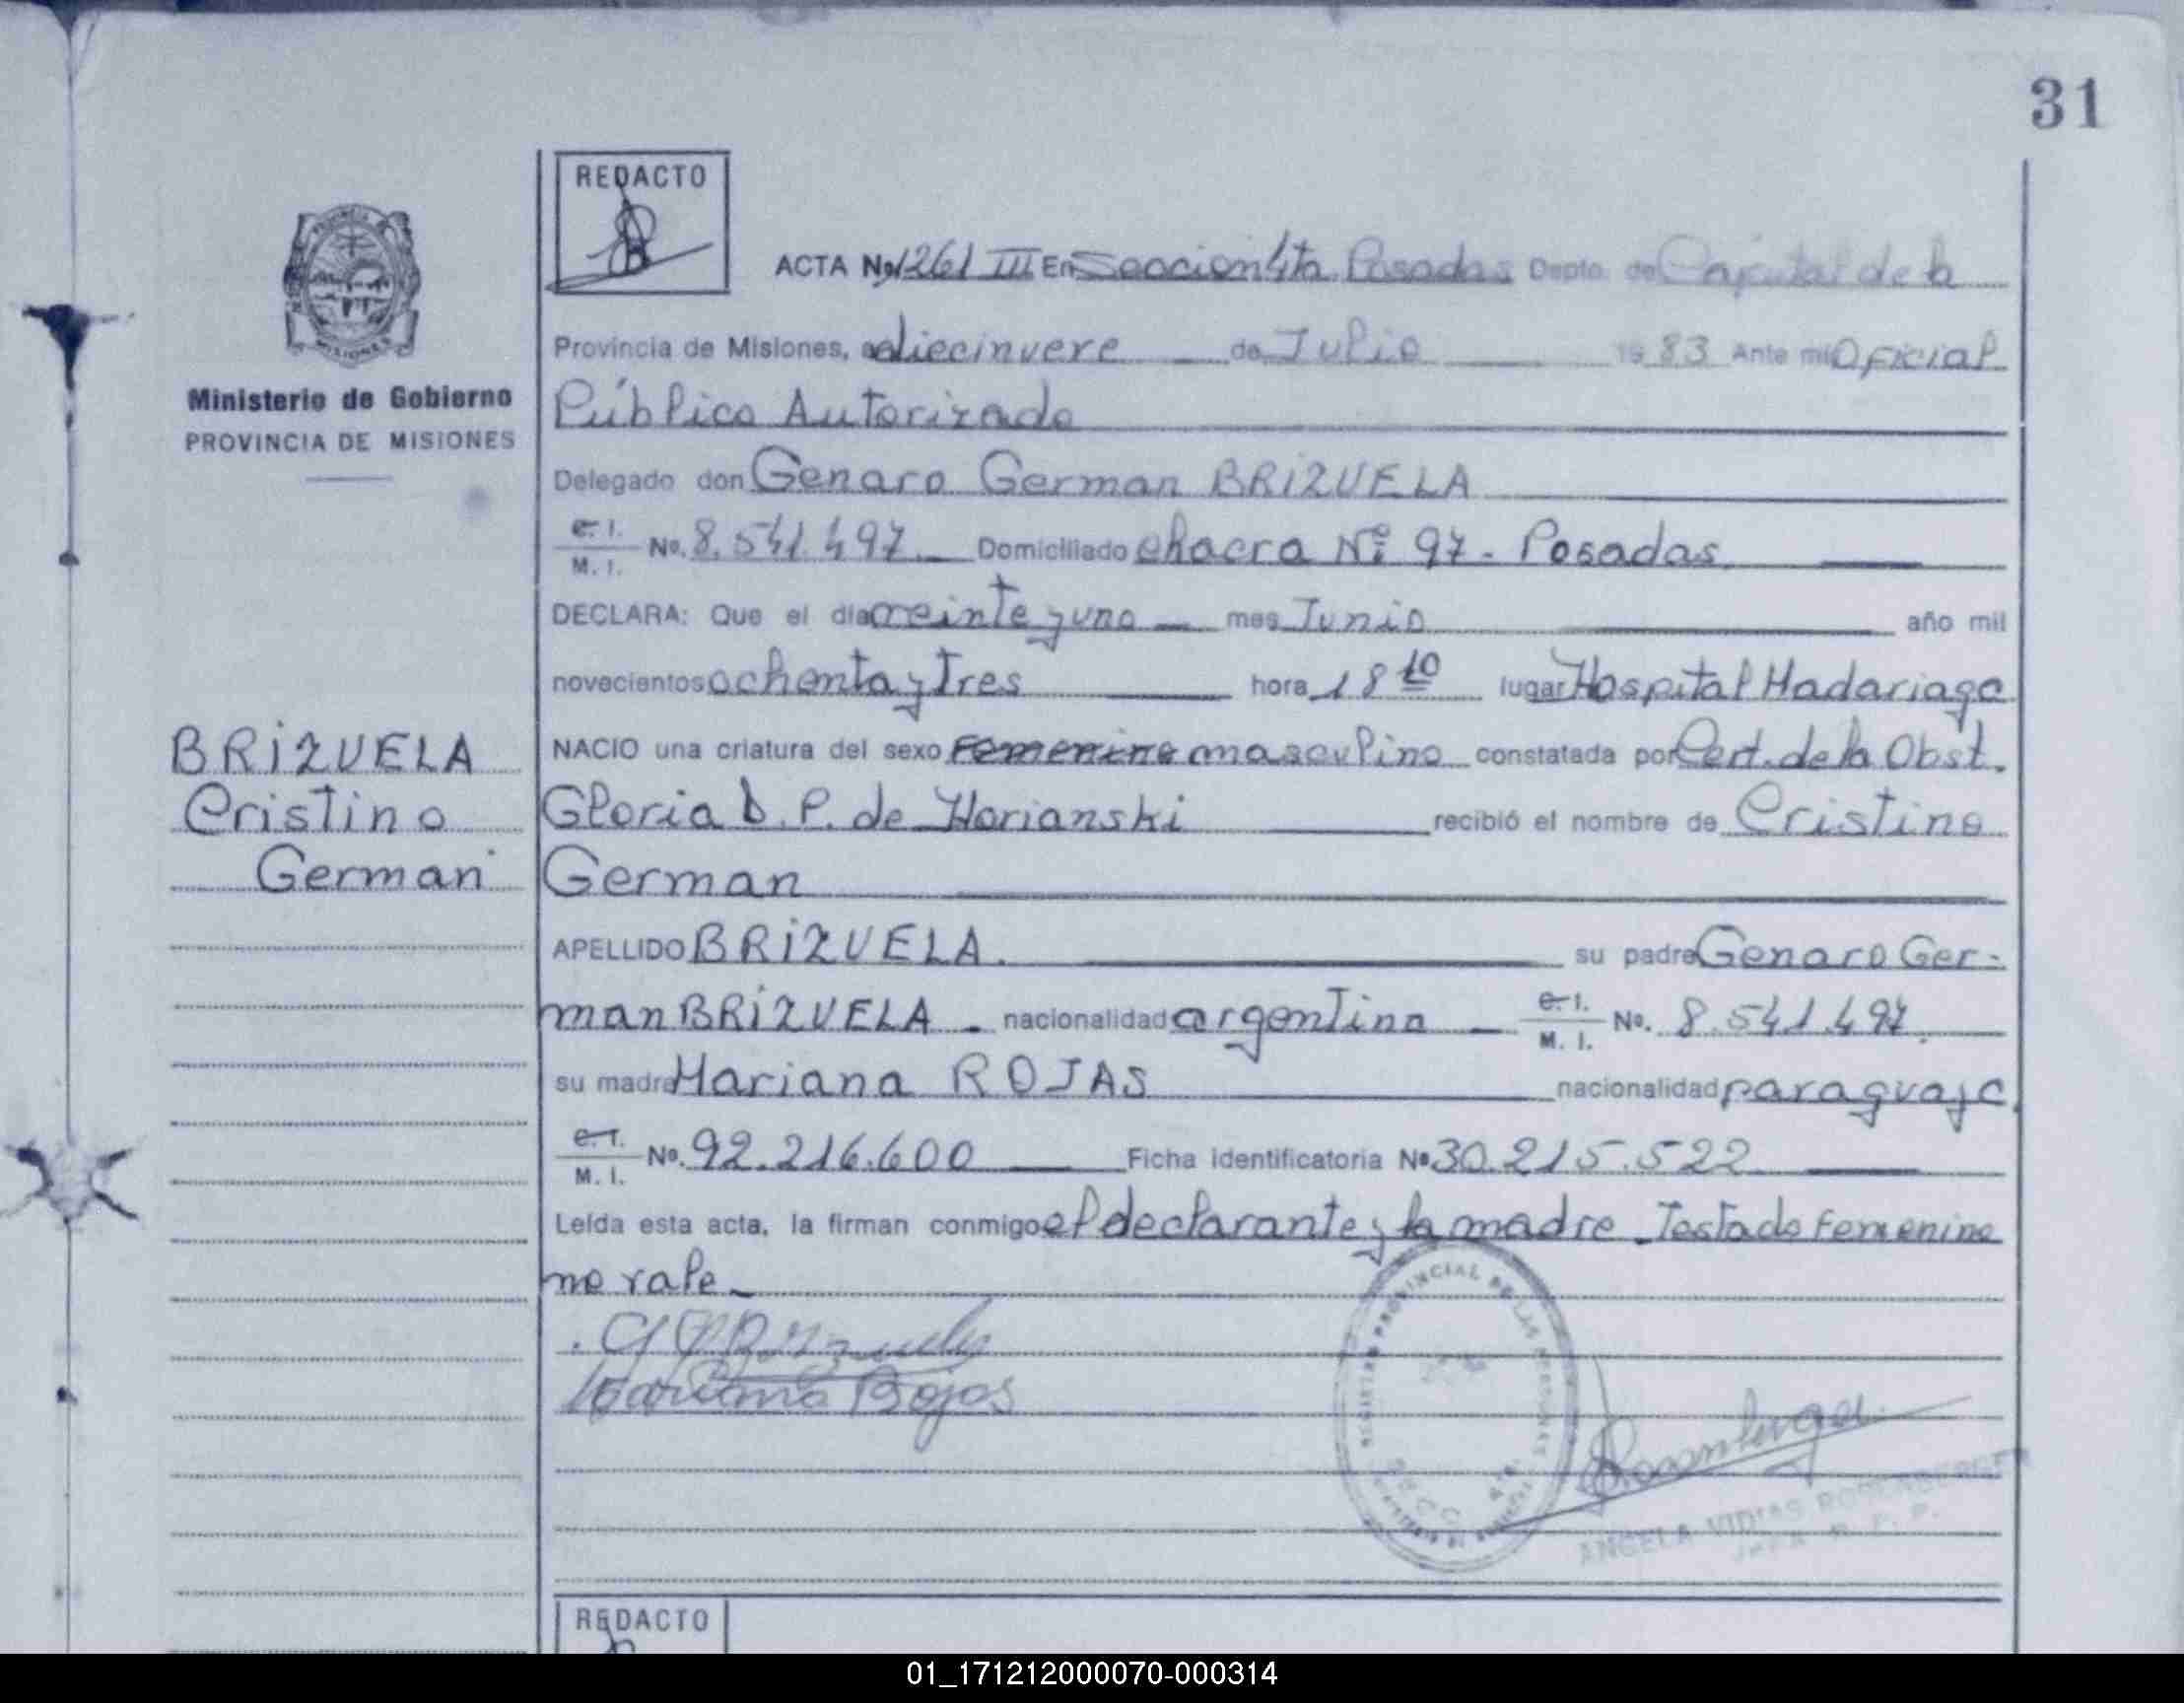 31
REDACTO
ACTA No 1261 III En Seccion 4ta. Posadas Depto. de Capital de la
Provincia de Misiones, a diecinueve de Julio 1983 Ante mi Oficial
Público Autorizado
Ministerio de Gobierno
PROVINCIA DE MISIONES
Delegado don Genaro German BRIZUELA
C. I.
M. I. No. 8.541.497. Domiciliado chacra Nº 97 - Posadas
DECLARA: Que el día veinte y uno mes Junio año mil
novecientos ochenta y tres hora 18 10 lugar Hospital Madariaga
NACIO una criatura del sexo Femenino masculino constatada por Cert. de la Obst.
Gloria D. P. de Horianski recibió el nombre de Cristino
German
BRIZUELA
Cristino
German
APELLIDO BRIZUELA. su padre Genaro Ger-
man BRIZUELA nacionalidad argentina C. I.
M. I. No. 8.541.497
su madre Mariana ROJAS nacionalidad paraguaya
C. I.
M. I. No. 92.216.600 Ficha identificatoria No 30.215.522
Leída esta acta, la firman conmigo el declarante y la madre. Testado Femenino
no vale
Mariana Rojas
REGISTRO PROVINCIAL DE LAS PERSONAS
ANGELA VIDIAS ROSENBERGER
REDACTO
01_171212000070-000314